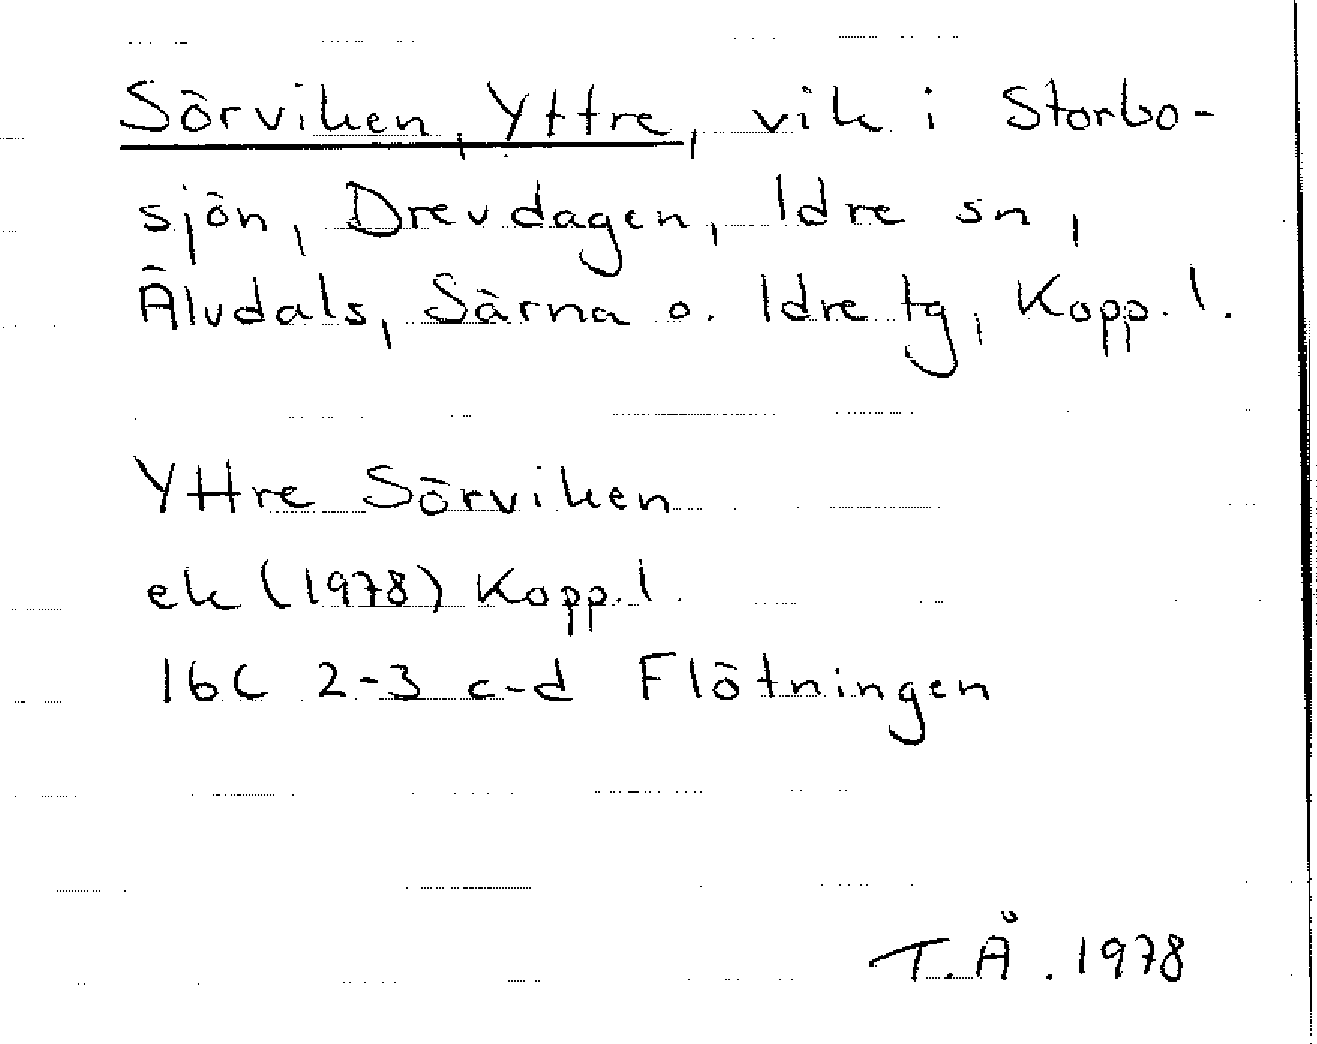 Sörviken, Yttre, vik i Storbo-
sjön, Drevdagen, Idre sn,
Älvdals, Särna o. Idre tg, Kopp. l.
Yttre Sörviken
ek (1978) Kopp. l.
16C 2-3 c-d Flötningen
T.Å. 1978